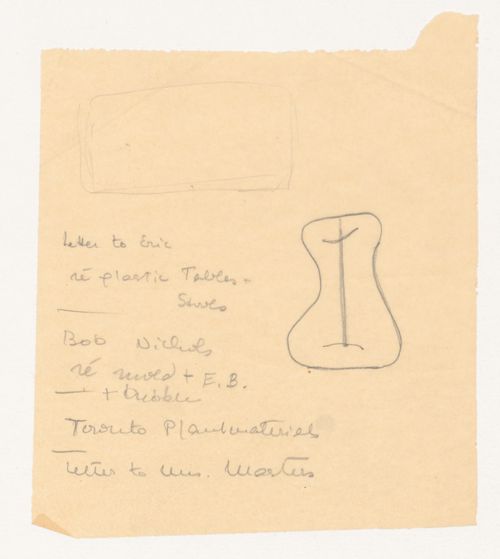 Letter to Eric
ré plastic Tables -
Stools
Bob Nichols
ré mold + E.B.
+
Toronto Plantmaterials
Letter to Mrs. Masters